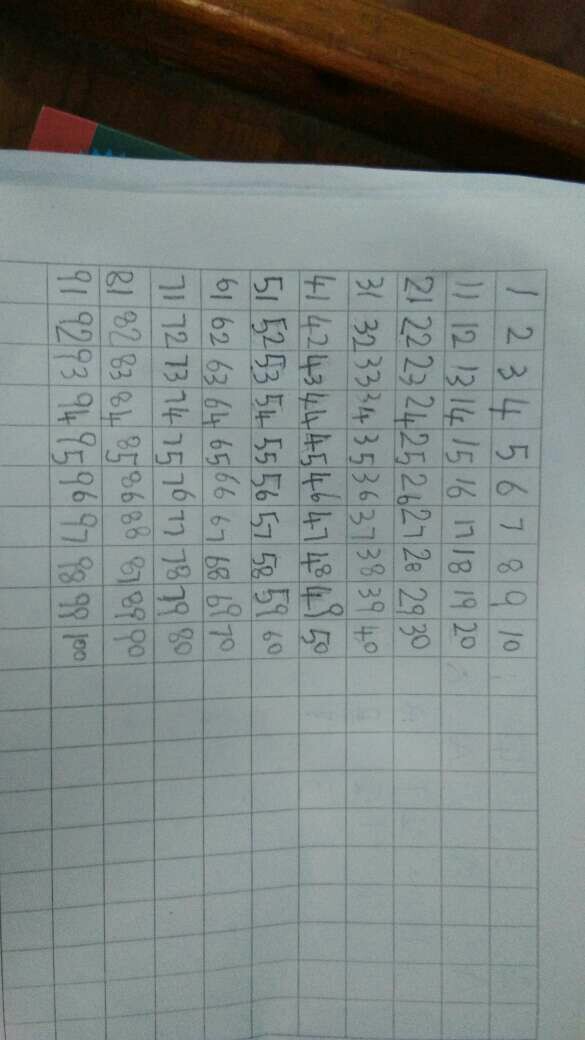 1 2 3 4 5 6 7 8 9 10
11 12 13 14 15 16 17 18 19 20
21 22 23 24 25 26 27 28 29 30
31 32 33 34 35 36 37 38 39 40
41 42 43 44 45 46 47 48 49 50
51 52 53 54 55 56 57 58 59 60
61 62 63 64 65 66 67 68 69 70
71 72 73 74 75 76 77 78 79 80
81 82 83 84 85 86 88 87 89 90
91 92 93 94 95 96 97 98 99 100